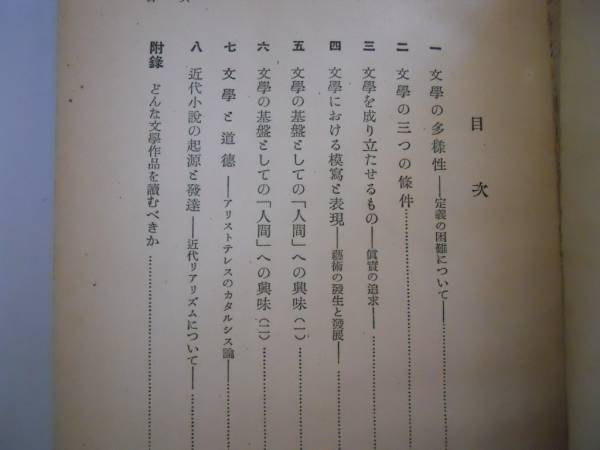 目次
一 文學の多樣性——定義の困難について——
二 文學の三つの條件…………
三 文學を成り立たせるもの——眞實の追求——…………
四 文學における模寫と表現——藝術の發生と發展——…………
五 文學の基盤としての「人間」への興味(一)…………
六 文學の基盤としての「人間」への興味(二)…………
七 文學と道德——アリストテレスのカタルシス論——…………
八 近代小說の起源と發達——近代リアリズムについて——…………
附錄 どんな文學作品を讀むべきか…………